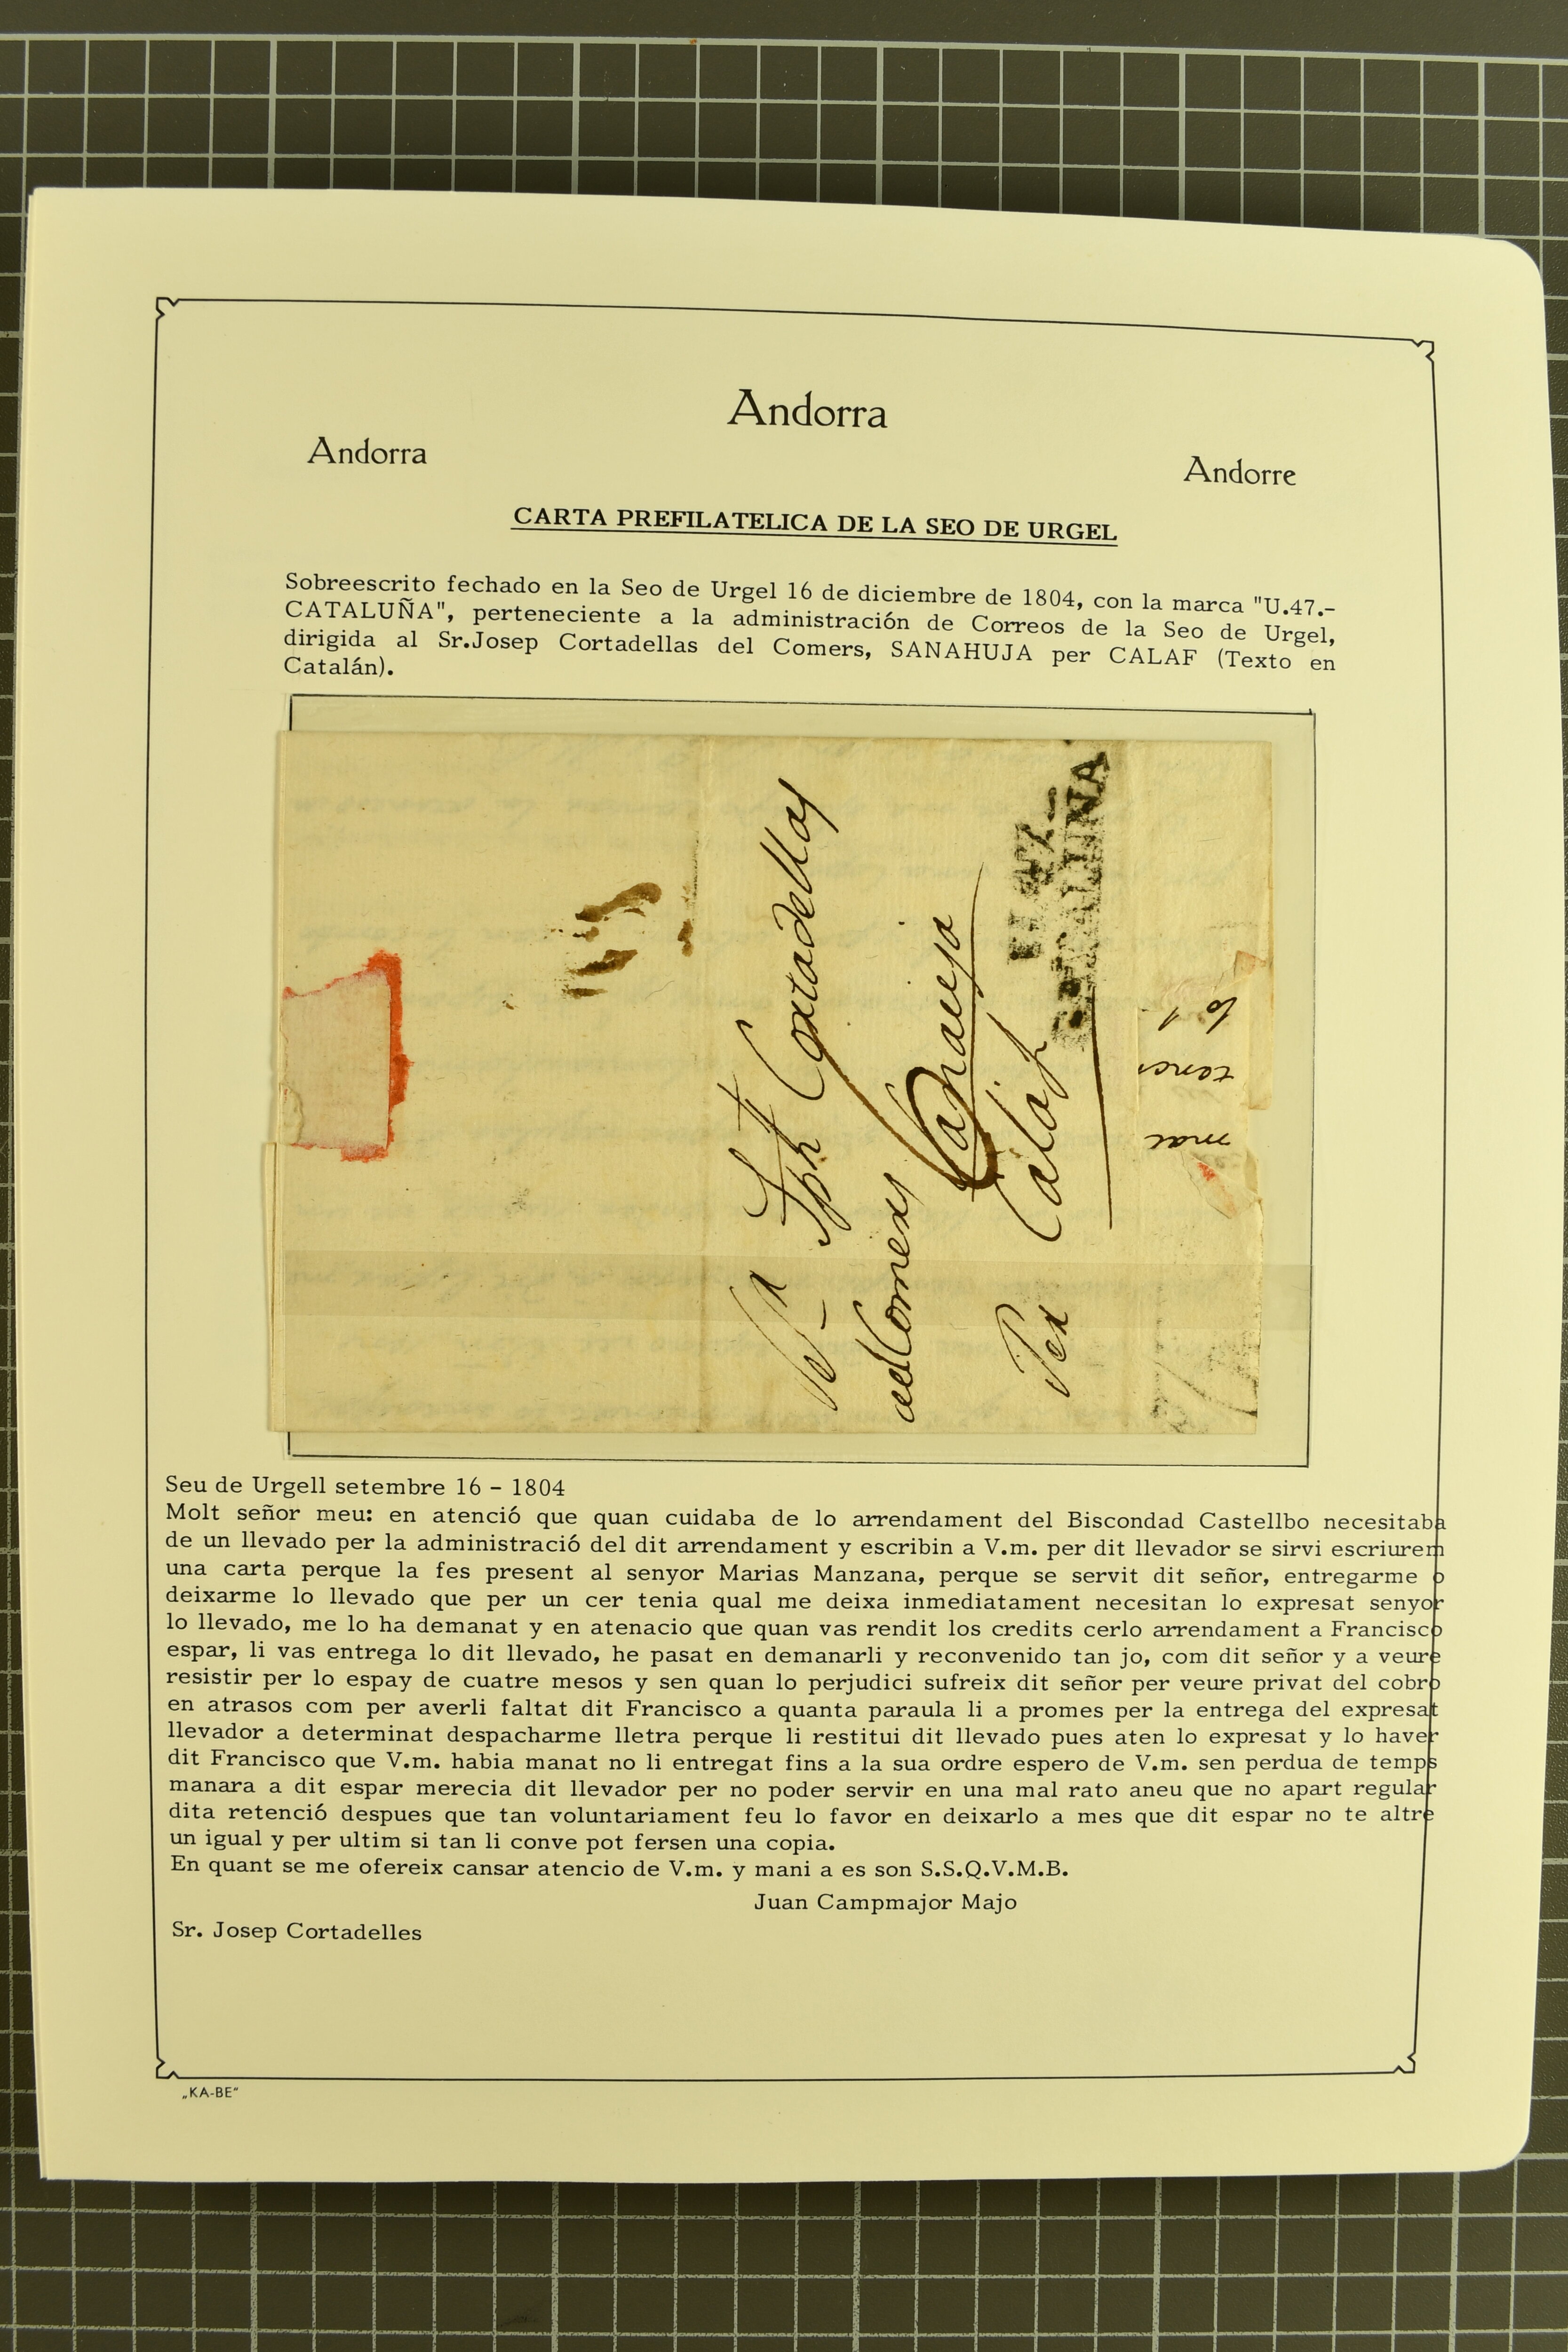 Andorra
Andorra
Andorre
CARTA PREFILATELICA DE LA SEO DE URGEL
Sobreescrito fechado en la Seo de Urgel 16 de diciembre de 1804, con la marca "U.47.-
CATALUÑA", perteneciente a la administración de Correos de la Seo de Urgel,
dirigida al Sr.Josep Cortadellas del Comers, SANAHUJA per CALAF (Texto en
Catalán).
Sr Jph Cortadellas
del Comers Sanauja
Per Calaf
U.47.-
CATALUÑA
lo
tener
mae
Seu de Urgell setembre 16 - 1804
Molt señor meu: en atenció que quan cuidaba de lo arrendament del Biscondad Castellbo necesitaba
de un llevado per la administració del dit arrendament y escribin a V.m. per dit llevador se sirvi escriurem
una carta perque la fes present al senyor Marias Manzana, perque se servit dit señor, entregarme o
deixarme lo llevado que per un cer tenia qual me deixa inmediatament necesitan lo expresat senyor
lo llevado, me lo ha demanat y en atenacio que quan vas rendit los credits cerlo arrendament a Francisco
espar, li vas entrega lo dit llevado, he pasat en demanarli y reconvenido tan jo, com dit señor y a veure
resistir per lo espay de cuatre mesos y sen quan lo perjudici sufreix dit señor per veure privat del cobro
en atrasos com per averli faltat dit Francisco a quanta paraula li a promes per la entrega del expresat
llevador a determinat despacharme lletra perque li restitui dit llevado pues aten lo expresat y lo haver
dit Francisco que V.m. habia manat no li entregat fins a la sua ordre espero de V.m. sen perdua de temps
manara a dit espar merecia dit llevador per no poder servir en una mal rato aneu que no apart regular
dita retenció despues que tan voluntariament feu lo favor en deixarlo a mes que dit espar no te altre
un igual y per ultim si tan li conve pot fersen una copia.
En quant se me ofereix cansar atencio de V.m. y mani a es son S.S.Q.V.M.B.
Juan Campmajor Majo
Sr. Josep Cortadelles
„KA-BE"